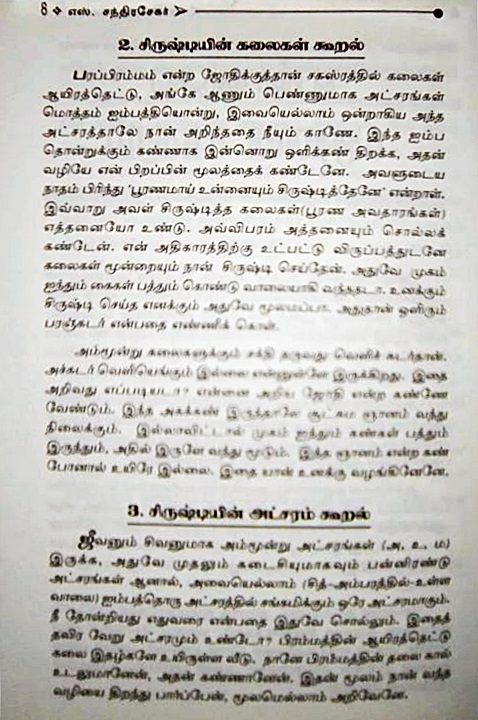 8 ❖ எஸ். சந்திரசேகர் ➢
2. சிருஷ்டியின் கலைகள் கூறல்
பரப்பிரம்மம் என்ற ஜோதிக்குத்தான் சகஸ்ரத்தில் கலைகள்
ஆயிரத்தெட்டு, அங்கே ஆணும் பெண்ணுமாக அட்சரங்கள்
மொத்தம் ஐம்பத்தியொன்று, இவையெல்லாம் ஒன்றாகிய அந்த
அட்சரத்தாலே நான் அறிந்ததை நீயும் காணே. இந்த ஐம்ப
தொன்றுக்கும் கண்ணாக இன்னொறு ஒளிக்கண் திறக்க, அதன்
வழியே என் பிறப்பின் மூலத்தைக் கண்டேனே. அவளுடைய
நாதம் பிரிந்து 'பூரணமாய் உன்னையும் சிருஷ்டித்தேனே' என்றாள்.
இவ்வாறு அவள் சிருஷ்டித்த கலைகள்(பூரண அவதாரங்கள்)
எத்தனையோ உண்டு. அவ்விபரம் அத்தனையும் சொல்லக்
கண்டேன். என் அதிகாரத்திற்கு உட்பட்டு விருப்பத்துடனே
கலைகள் மூன்றையும் நான் சிருஷ்டி செய்தேன். அதுவே முகம்
ஐந்தும் கைகள் பத்தும் கொண்டு வாலையாகி வந்ததடா. உனக்கும்
சிருஷ்டி செய்த எனக்கும் அதுவே மூலமப்பா. அதுதான் ஒளிரும்
பரஞ்சுடர் என்பதை எண்ணிக் கொள்.
அம்மூன்று கலைகளுக்கும் சக்தி தருவது வெளிச் சுடர்தான்.
அச்சுடர் வெளியெங்கும் இல்லை என்னுள்ளே இருக்கிறது. இதை
அறிவது எப்படியடா? என்னை அறிய ஜோதி என்ற கண்ணே
வேண்டும். இந்த அகக்கண் இருந்தாலே சூட்சும ஞானம் வந்து
நிலைக்கும். இல்லாவிட்டால் முகம் ஐந்தும் கண்கள் பத்தும்
இருந்தும், அதில் இருளே வந்து மூடும். இந்த ஞானம் என்ற கண்
போனால் உயிரே இல்லை. இதை யான் உனக்கு வழங்கினேனே.
3. சிருஷ்டியின் அட்சரம் கூறல்
ஜீவனும் சிவனுமாக அம்மூன்று அட்சரங்கள் (அ, உ, ம)
இருக்க, அதுவே முதலும் கடைசியுமாகவும் பன்னிரண்டு
அட்சரங்கள் ஆனால், அவையெல்லாம் (சித்-அம்பரத்தில்-உள்ள
வாலை) ஐம்பத்தொரு அட்சரத்தில் சங்கமிக்கும் ஒரே அட்சரமாகும்.
நீ தோன்றியது எதுவரை என்பதை இதுவே சொல்லும். இதைத்
தவிர வேறு அட்சரமும் உண்டோ? பிரம்மத்தின் ஆயிரத்தெட்டு
கலை இதழ்களே உயிருள்ள வீடு. நானே பிரம்மத்தின் தலை கால்
உடலுமானேன், அதன் கண்ணானேன். இதன் மூலம் நான் வந்த
வழியை திறந்து பார்ப்பேன், மூலமெல்லாம் அறிவேனே.